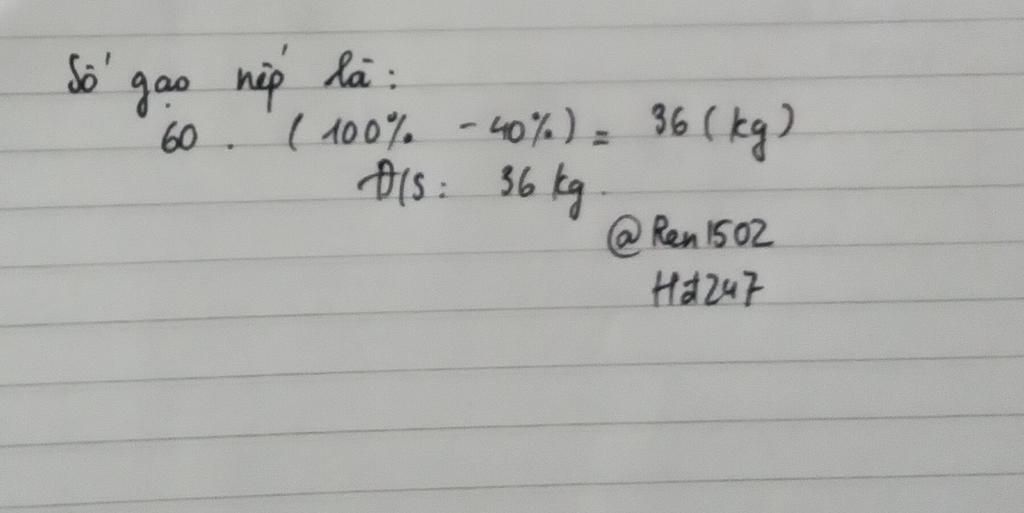 Số gạo nếp là:
60 . (100% - 40%) = 36 (kg)
Đ/S: 36 kg.
@Ren1502
Hđ247